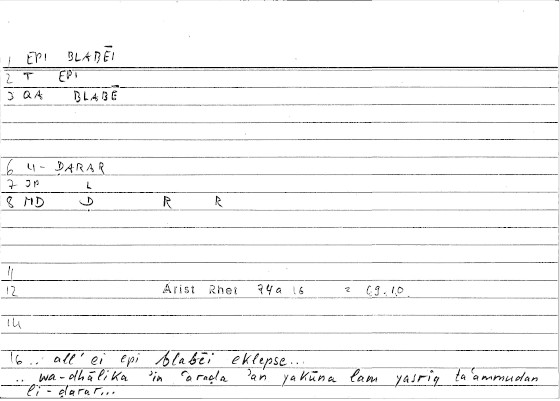 1 EPI BLABĒI
2 T EPI
3 QA BLABĒ
6 LI- ḌARAR
7 JP L
8 MD Ḍ R R
11
12 Arist Rhet 74a 16 = 69.10
14
16 .. all' ei epi blabēi eklepse...
.. wa-dhālika ʾin ʿaraḍa ʾan yakūna lam yasriq taʿammudan
li-ḍarar...